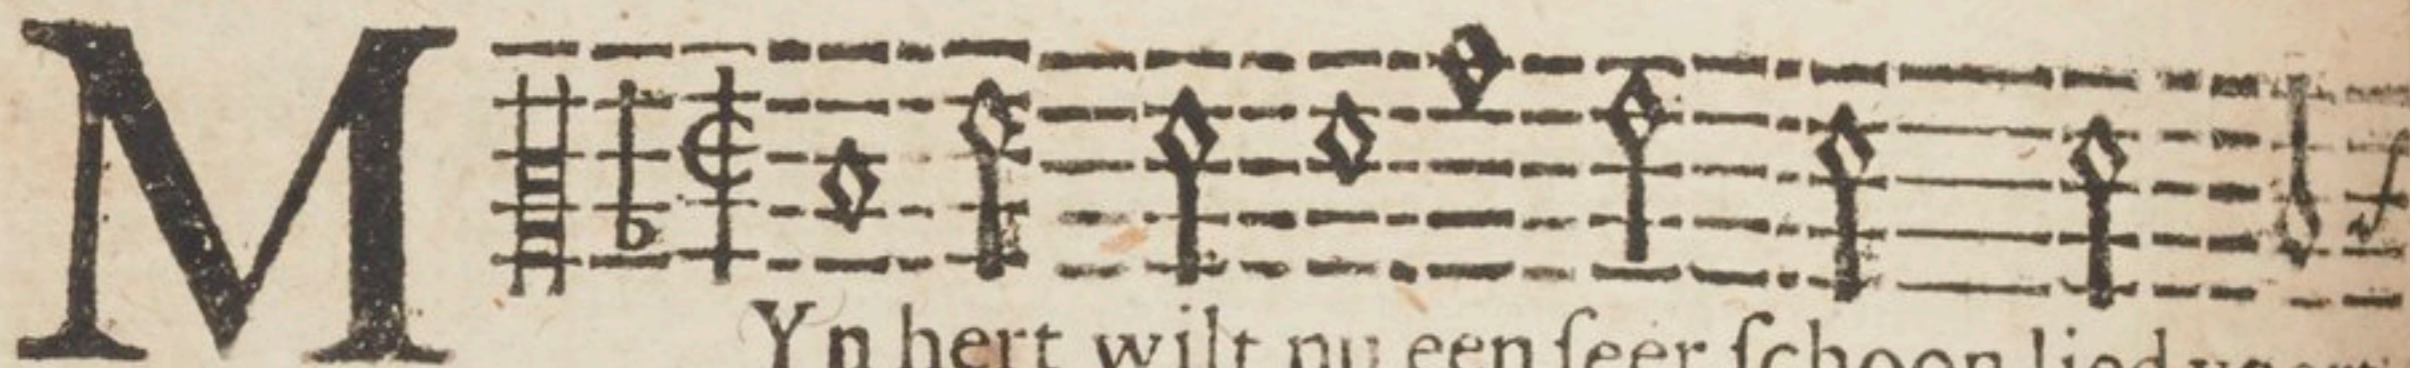 MYn hert wilt nu een ſeer ſchoon lied